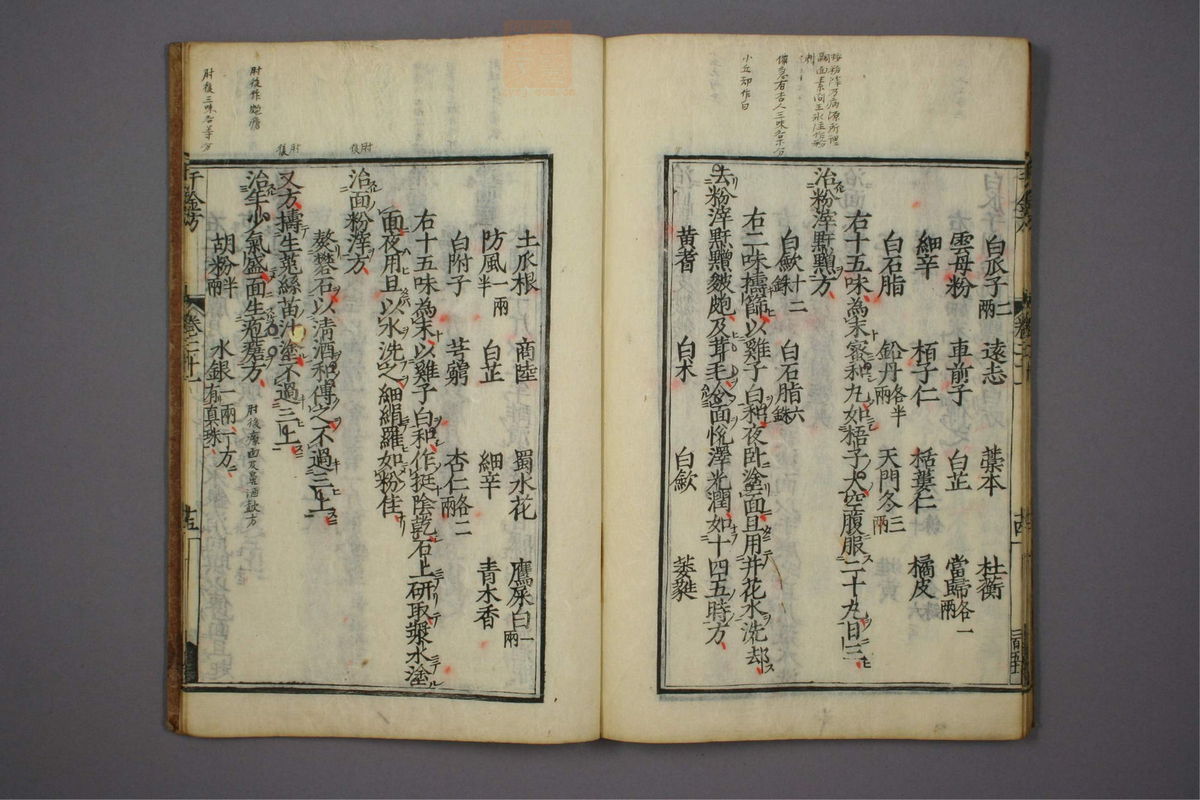 白瓜子二兩 遠志 藁本 杜衡
雲母粉 車前子 白芷 當歸各一兩
細辛 栢子仁 栝蔞仁 橘皮
白石脂 鉛丹各半兩 天門冬三兩
右十五味為末蜜和丸如梧子大空腹服二十丸日三
治粉滓䵟䵳方
白歛十二銖 白石脂六銖
右二味擣篩以雞子白和夜臥塗面旦用井花水洗却
去粉滓䵟䵳皺皰及茸毛令面悅澤光潤如十四五時方
黃耆 白朮 白歛 葳蕤
土瓜根 商陸 蜀水花 鷹屎白一兩
防風一兩半 白芷 細辛 青木香
白附子 芎藭 杏仁各二兩
右十五味為末以雞子白和作挺陰乾石上研取漿水塗
面夜用旦以水洗之細絹羅如粉佳
治面粉滓方
熬礬石以清酒和傅之不過三上
又方擣生菟絲苗汁塗不過三上
治年少氣盛面生皰瘡方
胡粉半兩 水銀一兩一方有真珠
千金方
卷二十七
小品却作白
肘後
肘後
肘後作皰瘡